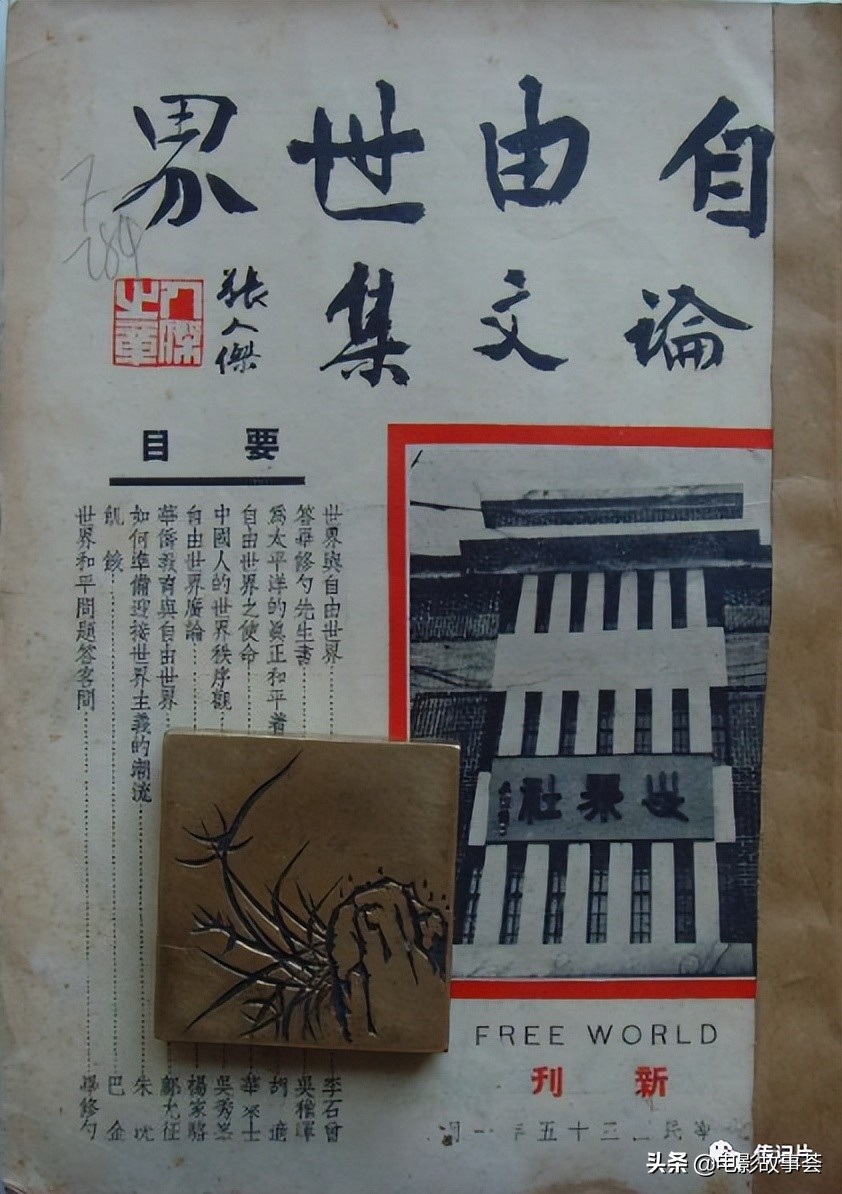 自由世界
論文集
張人傑
人傑之章
7
284
要目
世界與自由世界 李石曾
答畢修勺先生書 吳稚暉
為太平洋的眞正和平着 胡適
自由世界之使命 華來士
中國人的世界秩序觀 吳秀峯
自由世界廣論 楊家駱
華僑教育與自由世界
如何準備迎接世界主義的潮流 朱
飢餓 巴金
世界和平問題答客問 畢修勺
世界社
FREE WORLD
新刊
民 三十五年一月
传记片
头条 @电影故事荟